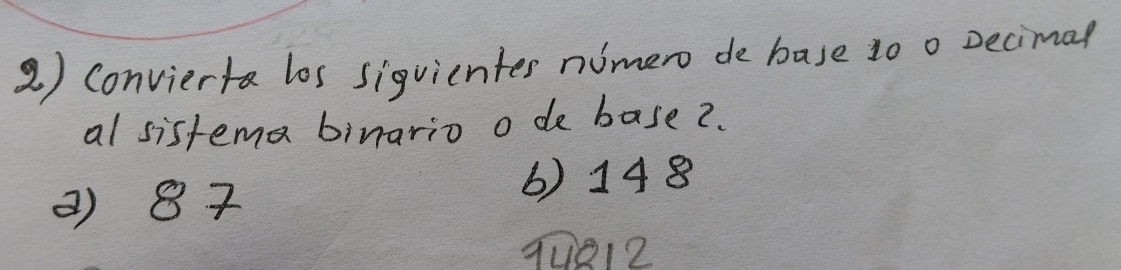 2) Convierta los siguientes número de base 10 o Decimal
al sistema binario o de base 2.
a) 87 b) 148
14812